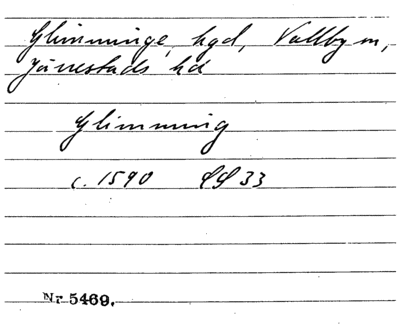 Glimminge, hgd, Vallby sn,
Järrestads hd
Glimming
c. 1590 SS 33
Nr 5469.